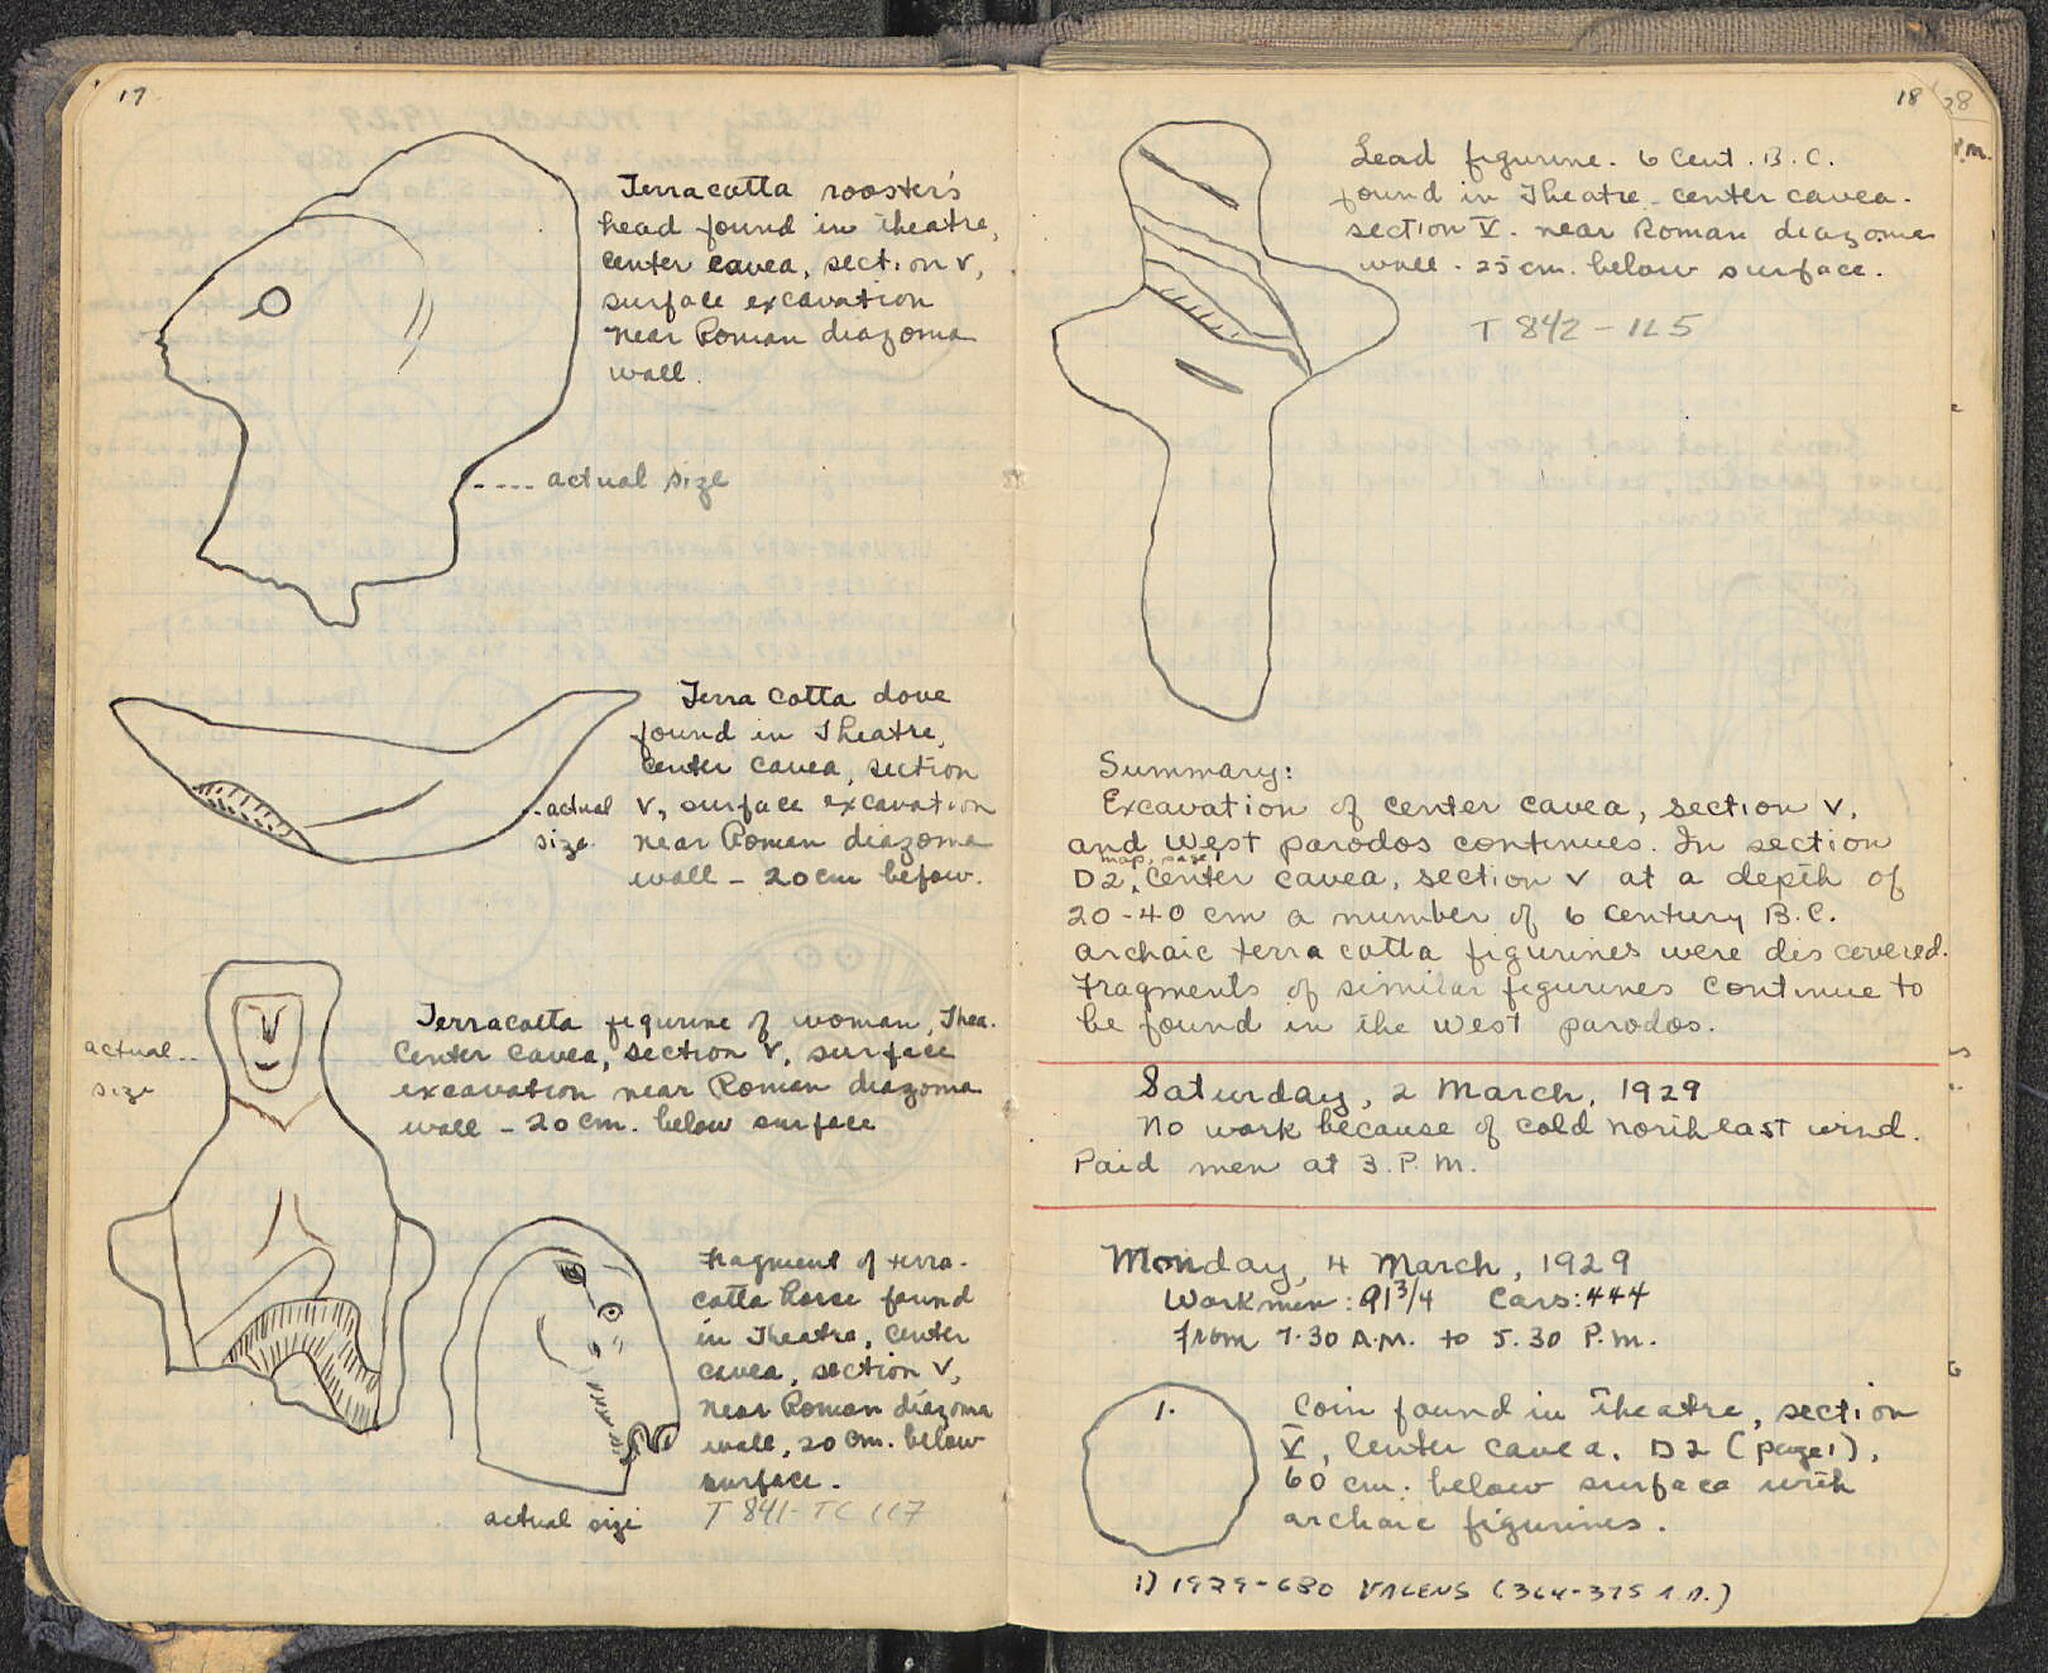 17
Terracotta rooster's
head found in theatre,
center cavea, section V,
surface excavation
near Roman diazoma
wall.
---- actual size
Terra cotta dove
found in Theatre,
center cavea, section
V, surface excavation
near Roman diazoma
wall - 20 cm below.
--actual
size
Terracotta figurine of woman, Thea.
Center cavea, section V, surface
excavation near Roman diazoma
wall - 20 cm. below surface
actual--
size
Fragment of terra-
cotta horse found
in Theatre, center
cavea, section V,
near Roman diazoma
wall, 20 cm. below
surface.
T 841-TC 117
actual size
18
28
P.M.
Lead figurine. 6 Cent. B.C.
found in Theatre - center cavea.
section V. near Roman diazoma
wall - 25 cm. below surface.
T 842 - IL 5
Summary:
Excavation of center cavea, section V,
and west parodos continues. In section
map, page 1
D2, center cavea, section V at a depth of
20-40 cm a number of 6 century B.C.
archaic terra cotta figurines were discovered.
Fragments of similar figurines continue to
be found in the west parodos.
Saturday, 2 March, 1929
No work because of cold northeast wind.
Paid men at 3 P.M.
Monday, 4 March, 1929
Workmen: 91 3/4 Cars: 444
From 7.30 A.M. to 5.30 P.M.
1.
Coin found in Theatre, section
V, center cavea. D2 (page 1),
60 cm. below surface with
archaic figurines.
1) 1929-680 VALENS (364-375 A.D.)